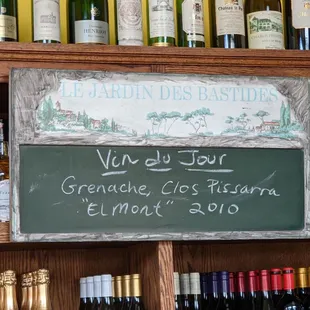 LE JARDIN DES BASTIDES
Vin du Jour
Grenache, Clos Pissarra
"El Mont" 2010